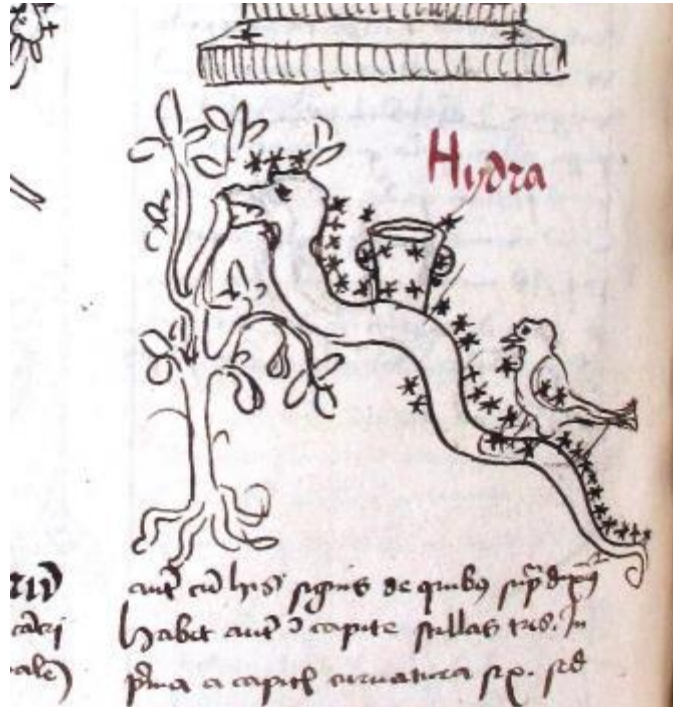 Hydra
aut cū his signis de quibus supra
cācri habet aut ī capite stellas tres. In
ale prima a capite curuatura sex. sed